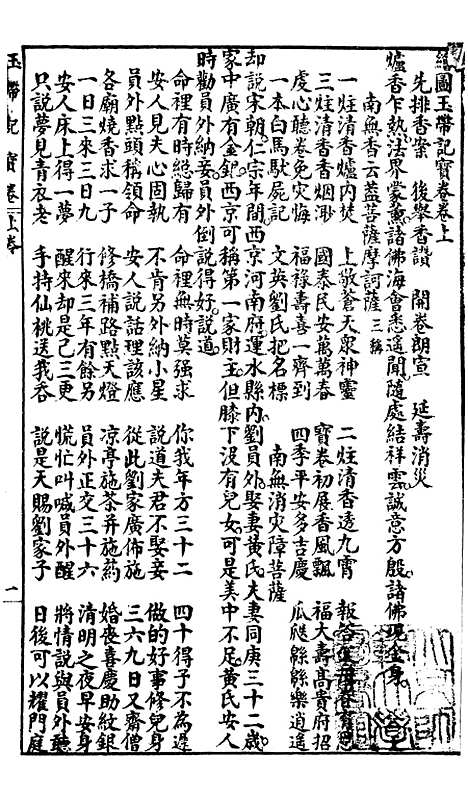 繪圖玉帶記寶卷卷上
先排香案　後舉香讚　開卷朗宣　延壽消災
爐香乍熱法界蒙熏諸佛海會悉遙聞隨處結祥雲誠意方殷諸佛現金身
南無香云蓋菩薩摩訶薩三稱
一炷清香爐內焚　上敬蒼天眾神靈　二炷清香透九霄　報答
三炷清香香烟渺　國泰民安萬萬春　寶卷初展香風飄　福大壽高貴府招
虔心聽卷免灾悔　福祿壽喜一齊到　四季平安多吉慶　瓜瓞綿綿樂逍遥
一本白馬馱屍記　文英劉氏把名標　南無消灾障菩薩
却說宋朝仁宗年間西京河南府運水縣內劉員外娶妻黃氏夫妻同庚三十二歲
家中廣有金銀西京可稱第一家財主但膝下没有兒女可是美中不足黃氏安人
時勸員外納妾員外倒說得好說道
命裡有時總歸有　命裡無時莫强求　你我年方三十二　四十得子不為遲
安人見夫心固執　不肯另外納小星　說道夫君不娶妾　做的好事修兒身
員外點頭稱領命　安人說話理該應　從此劉家廣佈施　三六九日又齋僧
各廟燒香求一子　修橋補路點天燈　凉亭施茶并施葯　婚喪喜慶助紋銀
一日三來三日九　行來三年有餘另　員外正交三十六　清明之夜早安身
安人床上得一夢　醒來却是己三更　慌忙叫喊員外醒　將情說與員外聽
只說夢見青衣老　手持仙桃送我吞　說是天賜劉家子　日後可以耀門庭
玉帶記寶卷　上卷　一